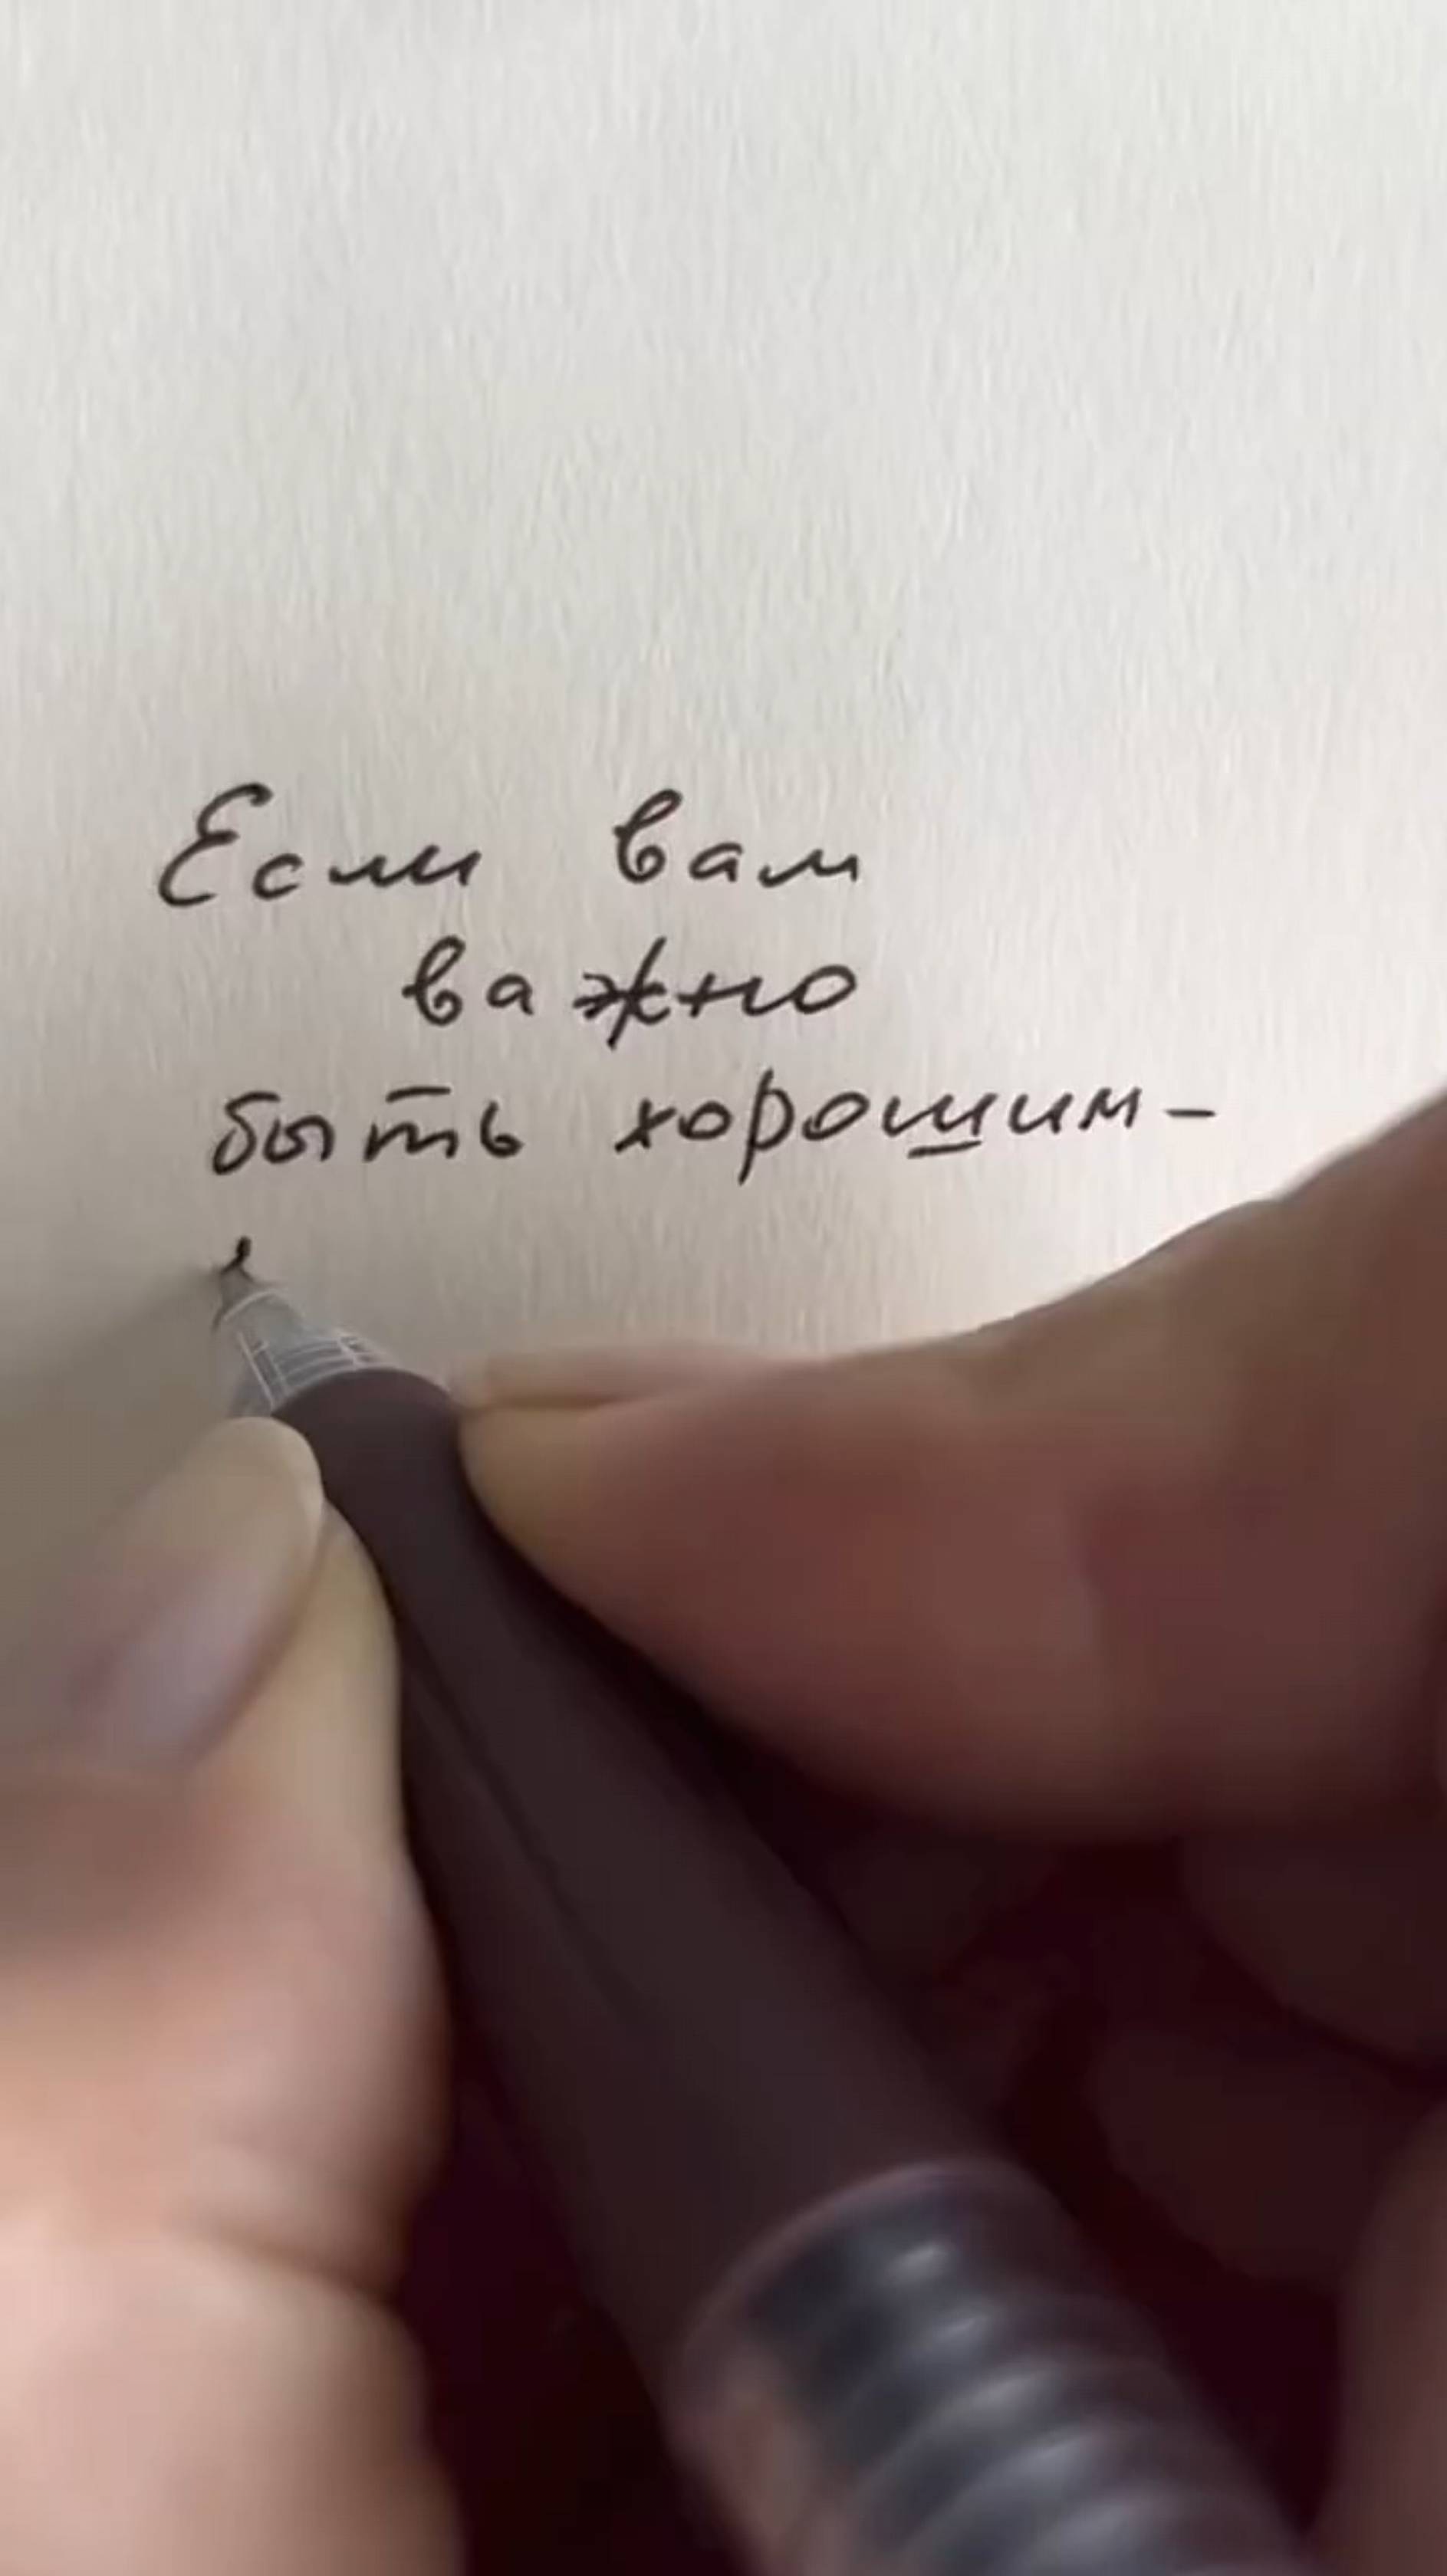 Если вам
важно
быть хорошим-